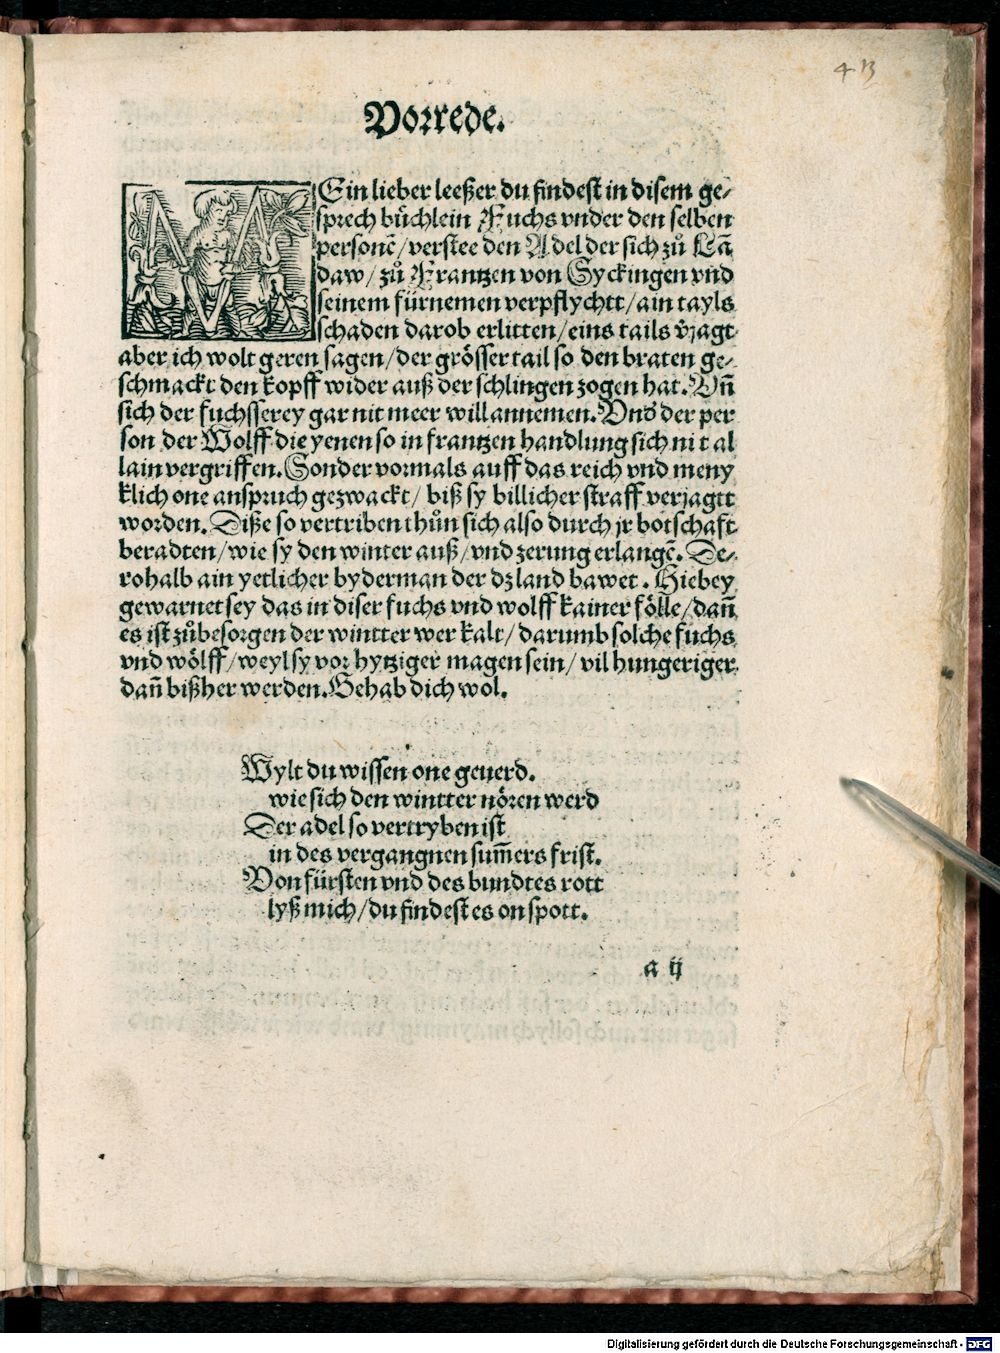 4 13
Vorrede.
MEin lieber leeßer du findest in disem ge-
sprech bůchlein Fuchs vnder den selben
personē/ verstee den Adel der sich zů Lā
daw/ zů Frantzen von Syckingen vnd
seinem fürnemen verpflychtt/ ain tayls
schaden darob erlitten/ eins tails v̄jagt
aber ich wolt geren sagen/ der grösser tail so den braten ge-
schmackt den kopff wider auß der schlingen zogen hat. Vn̄
sich der fuchsserey gar nit meer will annemen. Vnd̄ der per
son der Wolff die yenen so in frantzen handlung sich ni t al
lain vergriffen. Sonder vormals auff das reich vnd meny
klich one anspruch gezwackt/ biß sy billicher straff verjagtt
worden. Diße so vertriben thůn sich also durch jr botschafft
beradten/ wie sy den winter auß/ vnd zerung erlangē. De-
rohalb ain yetlicher byderman der dz land bawet. Hiebey
gewarnet sey das in diser fuchs vnd wolff kainer fölle/ dan̄
es ist zůbesorgen der wintter wer kalt/ darumb solche fuchs
vnd wölff/ weyl sy vor hytziger magen sein/ vil hungeriger
dan̄ bißher werden. Gehab dich wol.
Wylt du wissen one geuerd.
wie sich den wintter nören werd
Der adel so vertryben ist
in des vergangnen sum̄ers frist.
Von fürsten vnd des bundtes rott
lyß mich/ du findest es on spott.
a ij
Digitalisierung gefördert durch die Deutsche Forschungsgemeinschaft - DFG